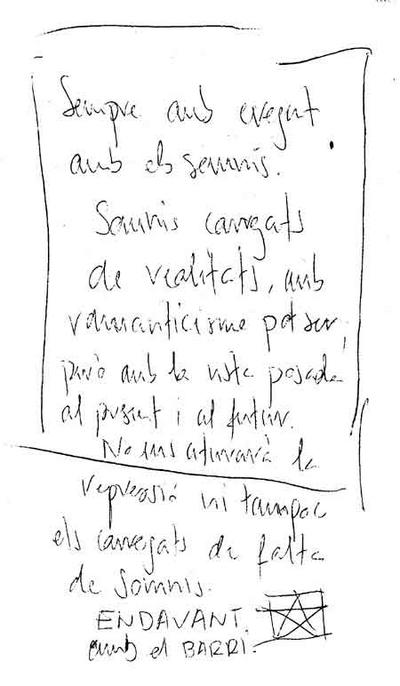 Sempre amb cregut
amb els somnis.
Somnis carregats
de realitats, amb
romanticisme pot ser,
però amb la vista posada
al present i al futur.
No ens aturarà la
repressió ni tampoc
els carregats de falta
de somnis.
ENDAVANT.
amb el BARRI.